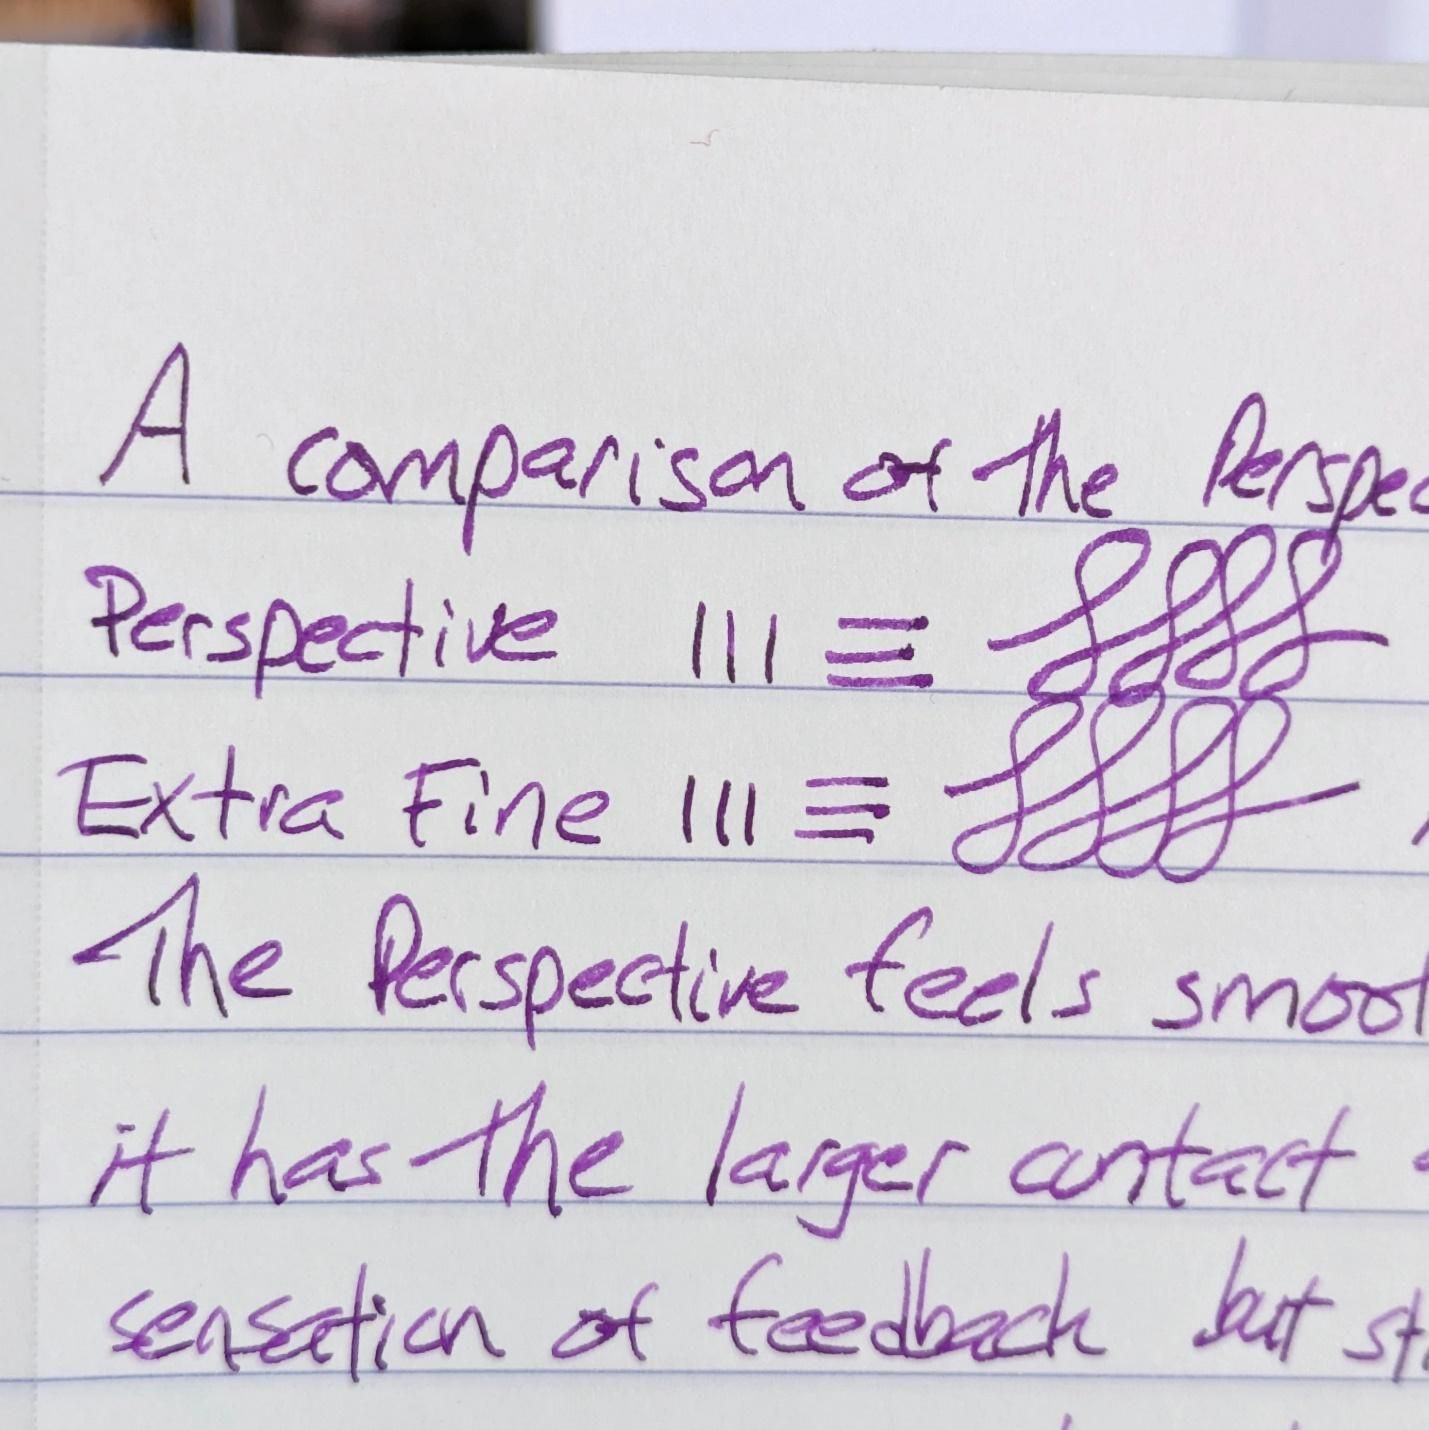 A comparison of the Perspec
Perspective
Extra Fine
The Perspective feels smoot
it has the larger contact
sensation of feedback but st